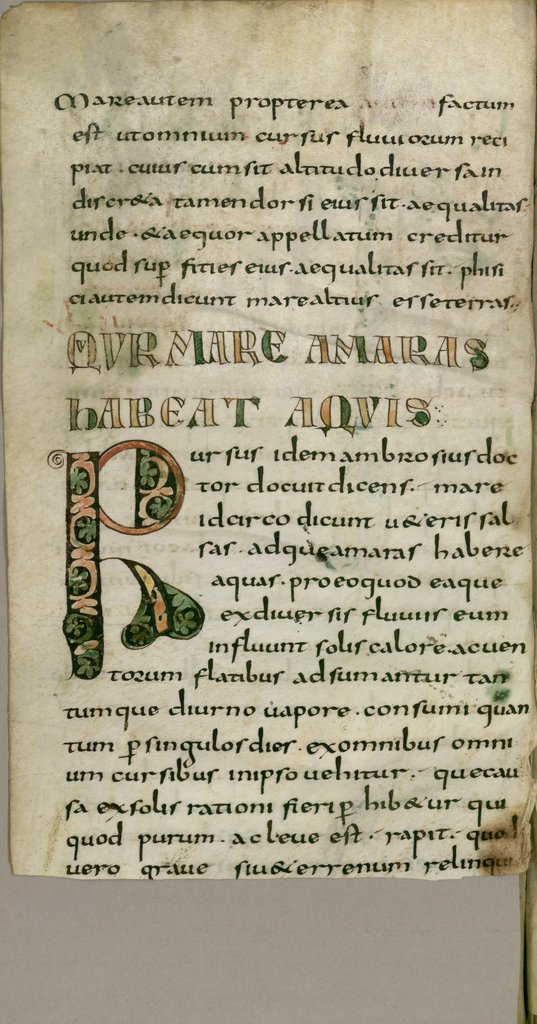 Mare autem propterea factum
est ut omnium cursus fluuiorum reci
piat. cuius cum sit altitudo diuersa in
discr&a tamen dorsi eius sit. aequalitas
unde. & aequor appellatum creditur
quod sup fities eius. aequalitas sit. phisi
ci autem dicunt mare altius esse terras.
QVR MARE AMARAS
hABEAT AQVIS
Rursus idem ambrosius doc
tor docuit dicens. mare
idcirco dicunt u&eris sal
sas. adque amaras habere
aquas. pro eo quod eaque
ex diuersis fluuiis eum
influunt solis calore. ac uen
torum flatibus adsumantur tan
tumque diurno uapore. consumi quan
tum p singulos dies. ex omnibus omni
um cursibus in ipso uehitur. que cau
sa ex solis rationi fieri p hib&ur qui
quod purum. ac leue est. rapit. quod
uero graue siu& errenum relinqui